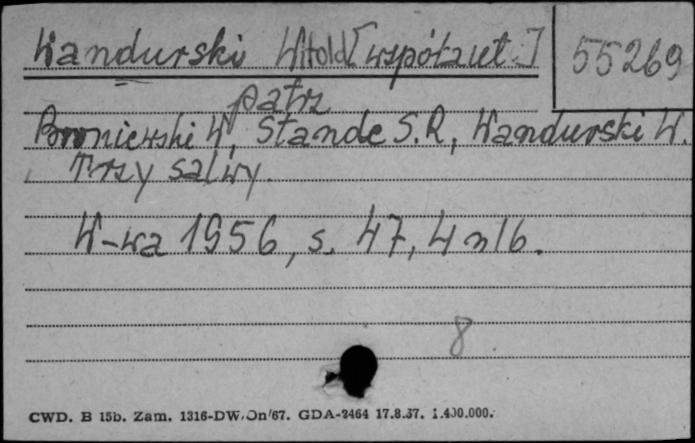 Wandurski Witold [współaut.]
55269
patrz
Broniewski W, Stande S.R, Wandurski W.
Trzy salwy.
W-wa 1956, s. 47, 4 nlb.
8
CWD. B 15b. Zam. 1316-DW/Dn/67. GDA-2464 17.8.67. 1.400.000.